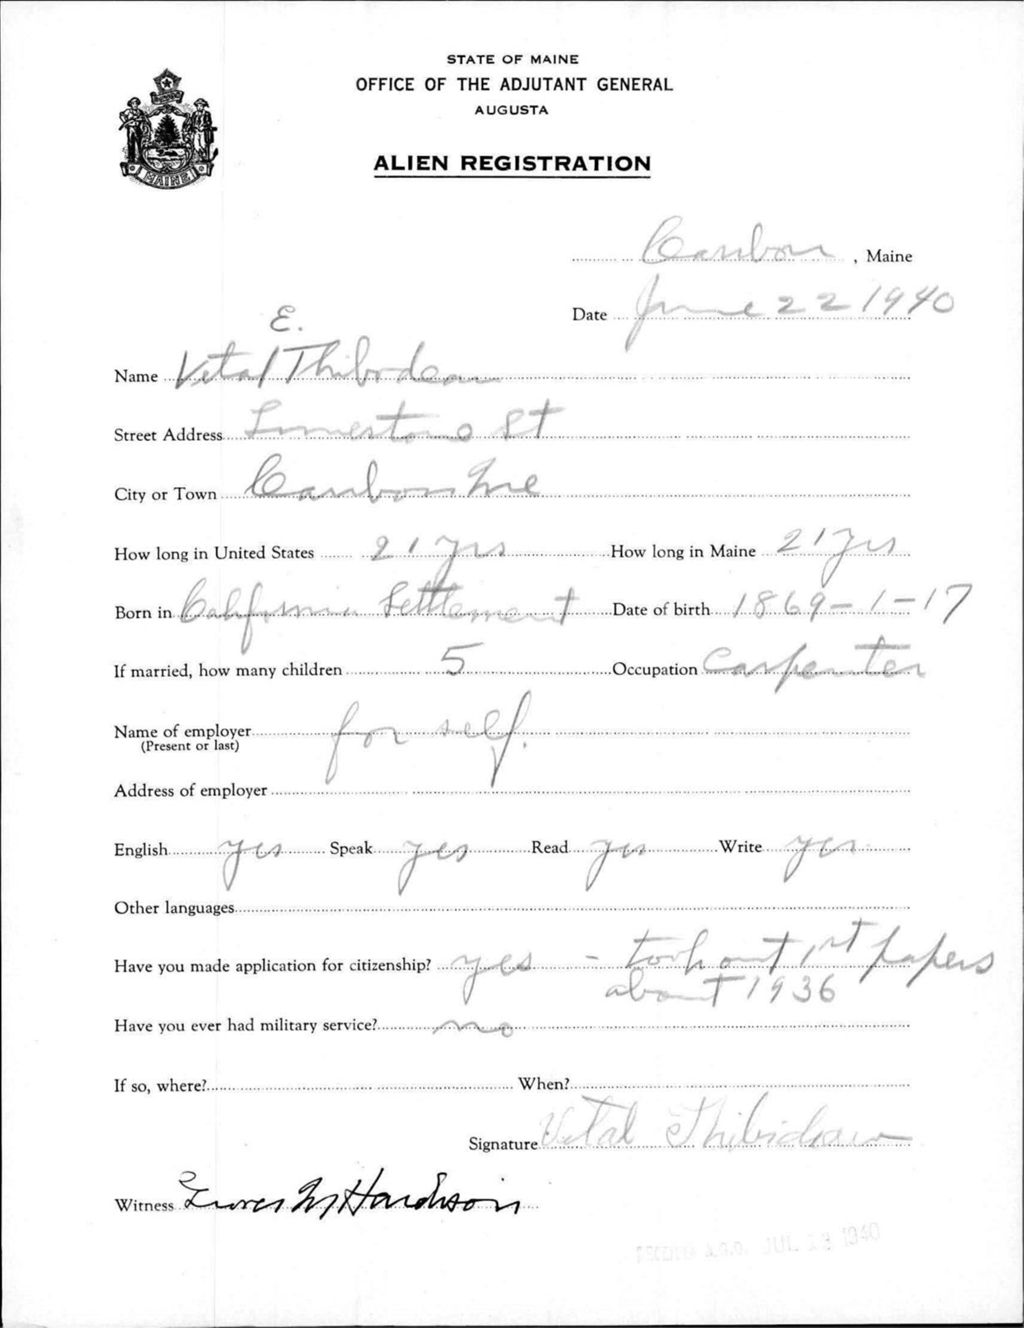 STATE OF MAINE
OFFICE OF THE ADJUTANT GENERAL
AUGUSTA
MAINE
ALIEN REGISTRATION
Caribou, Maine
Date June 22 1940
E.
Name Vital Thibodeau
Street Address Limestone St
City or Town Caribou Me
How long in United States 21 yrs How long in Maine 21 yrs
Born in California Settlement Date of birth 1869-1-17
If married, how many children 5 Occupation Carpenter
Name of employer for self.
(Present or last)
Address of employer
English yes Speak yes Read yes Write yes
Other languages
Have you made application for citizenship? yes - took out 1st papers
about 1936
Have you ever had military service? no
If so, where? When?
Signature Vital Thibideau
Witness Hardison
RECEIVED A.G.O. JUL 1940